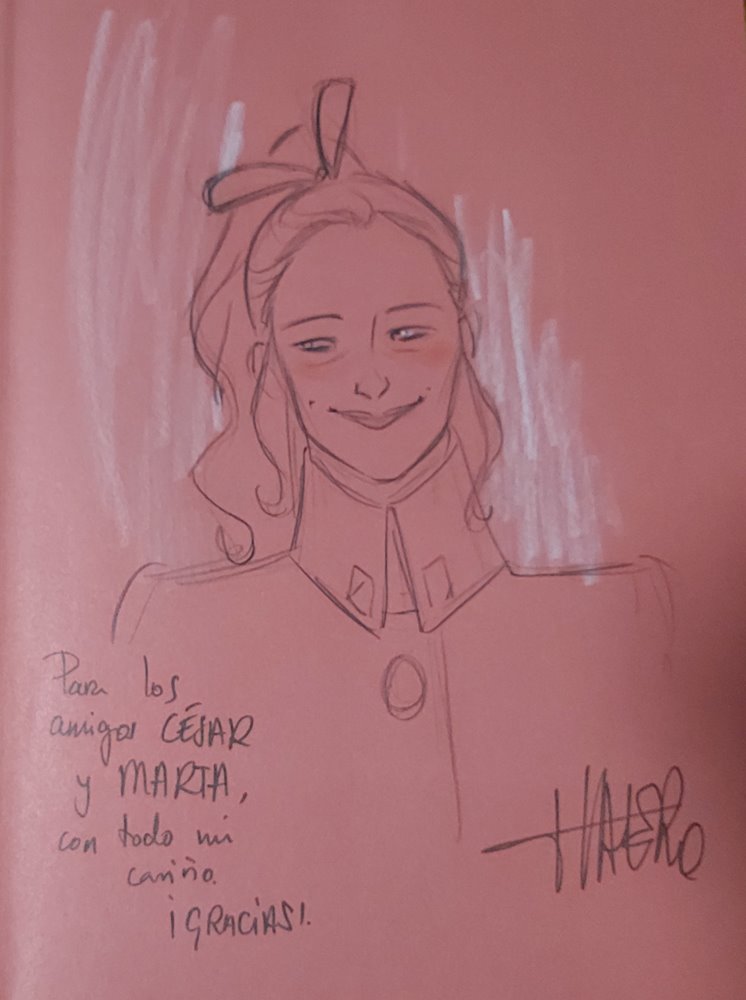 Para los
amigos CÉSAR
y MARTA,
con todo mi
cariño.
¡GRACIAS!.